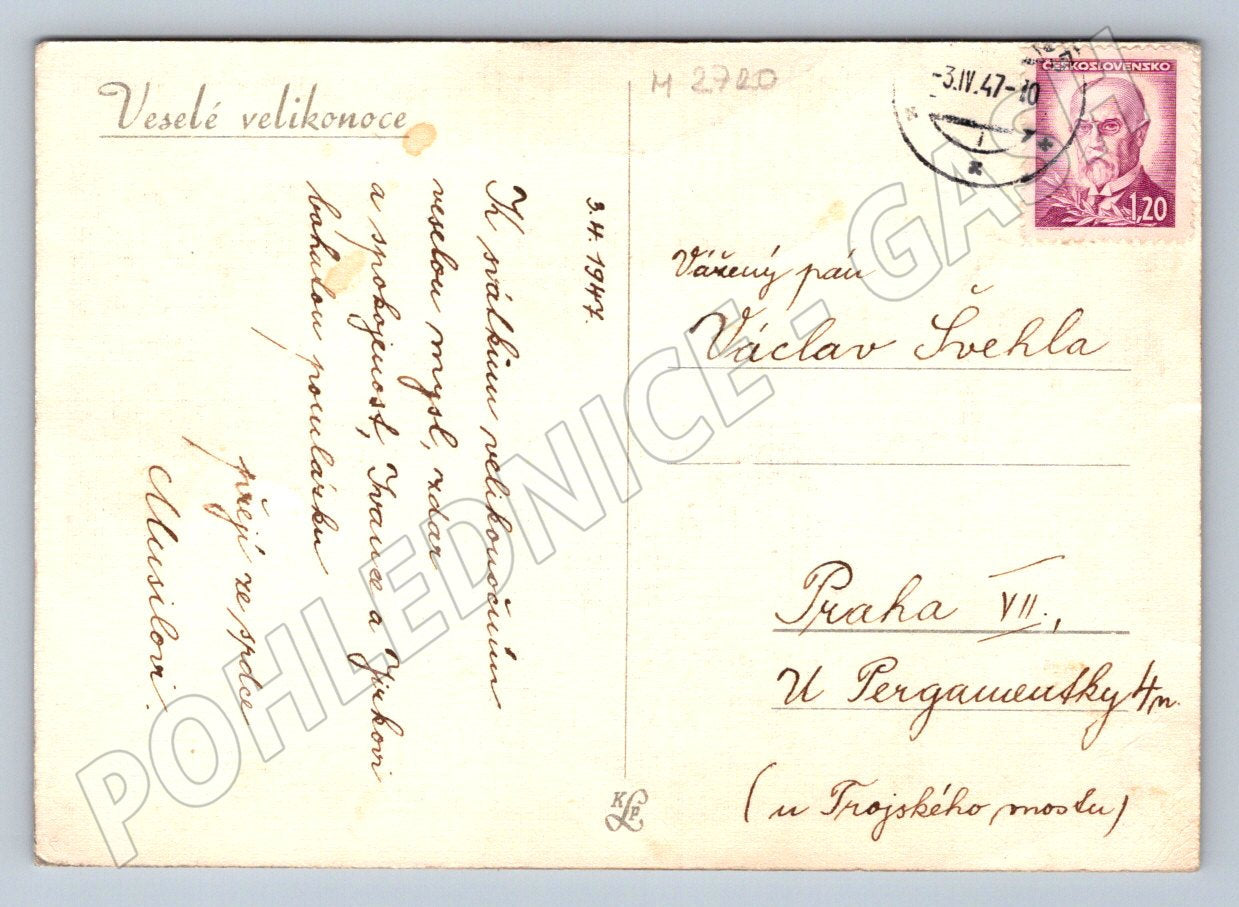 Veselé velikonoce
M 2720
-3.IV.47-10
ČESKOSLOVENSKO
1,20
3.4.1947.
K svátkům velikonočním
veselou mysl, zdar
a spokojenost, Ivance a Jirkovi
bohatou pomlázku
přejí ze srdce
Musilovi.
Vážený pán
Václav Švehla
Praha VII.,
U Pergamentky 4n.
(u Trojského mostu)
KLP
POHLEDNICE - GASH